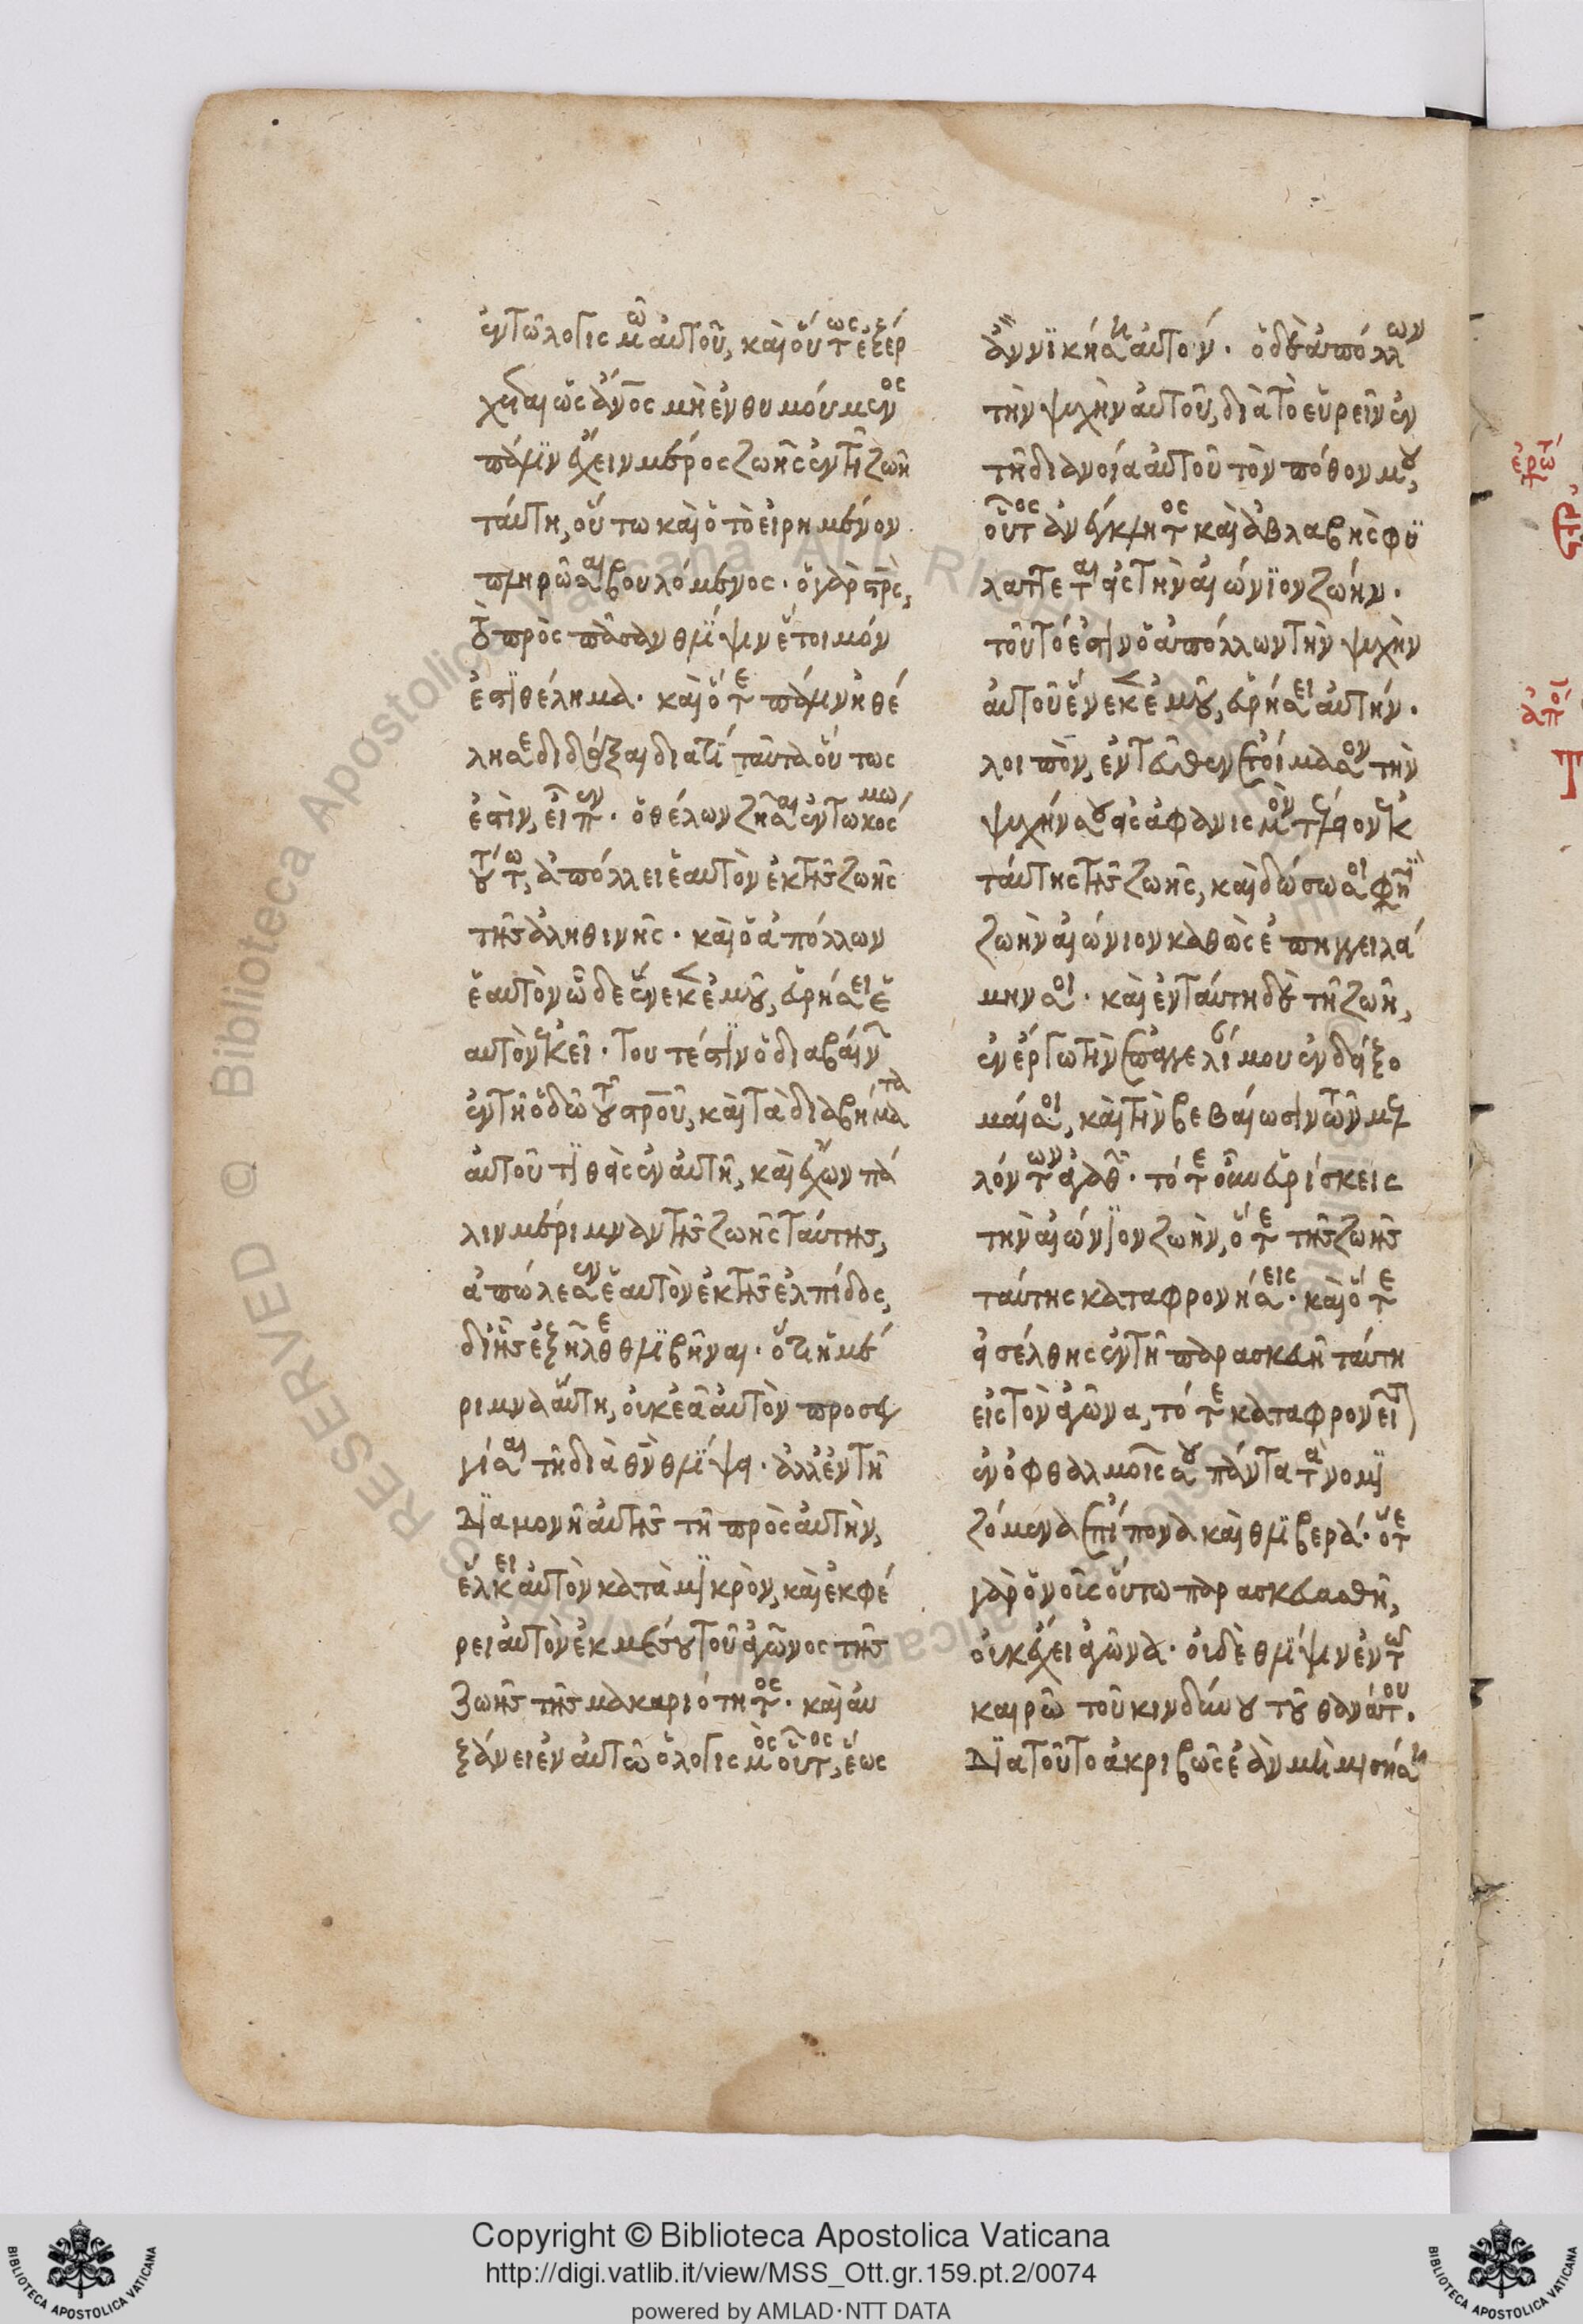 ἐν τῷ λογισμῷ αὐτοῦ, καὶ οὕτως ἐξέρ
χεσθαι ὡς ἄνος μὴ ἐνθυμούμενος
πάλιν ἔχειν μέρος ζωῆς ἐν τῇ ζωῇ
ταύτῃ, οὕτω καὶ ὁ τὸ εἰρημένον
πληρῶσαι βουλόμενος. ὁ γὰρ σρς,
τὸ πρὸς πᾶσαν θλίψιν ἕτοιμόν
ἐστι θέλημα. καὶ ὅτε πάλιν ἠθέ
λησε διδάξαι διατί ταῦτα οὕτως
ἐστὶν, εἶπεν. ὁ θέλων ζῆσαι ἐν τῷ κόσμῳ
τούτῳ, ἀπόλλει ἑαυτὸν ἐκ τῆς ζωῆς
τῆς ἀληθινῆς. καὶ ὁ ἀπόλλων
ἑαυτὸν ὧδε ἕνεκεν ἐμοῦ, εὑρήσει ἑ
αυτὸν ἐκεῖ. τουτέστιν ὁ διαβαίνων
ἐν τῇ ὁδῷ τοῦ σροῦ, καὶ τὰ διαβήματα
αὐτοῦ τιθεὶς ἐν αὐτῇ, καὶ ἔχων πά
λιν μέριμναν τῆς ζωῆς ταύτης,
ἀπώλεσεν ἑαυτὸν ἐκ τῆς ἐλπίδος,
δι' ἧς ἐξῆλθε θλιβῆναι. ὅτι ἡ μέ
ριμνα αὕτη, οὐκ ἐᾷ αὐτὸν προσεγ
γίσαι τῇ διὰ θν θλίψει. ἀλλ' ἐν τῇ
διαμονῇ αὐτῆς τῇ πρὸς αὐτὴν,
ἕλκει αὐτὸν κατὰ μικρὸν, καὶ ἐκφέ
ρει αὐτὸν ἐκ μέσου τοῦ ἀγῶνος τῆς
ζωῆς τῆς μακαριότητος. καὶ αυ
ξάνει ἐν αὐτῷ ὁ λογισμὸς οὗτος, ἕως
ἂν νικήσῃ αὐτόν. ὁ δὲ ἀπόλλων
τὴν ψυχὴν αὐτοῦ, διὰ τὸ εὑρεῖν ἐν
τῇ διανοίᾳ αὐτοῦ τὸν πόθον μου,
οὗτος ἀνέγκλητος καὶ ἀβλαβὴς φυ
λάττεται εἰς τὴν αἰώνιον ζωήν.
τοῦτό ἐστιν ὁ ἀπόλλων τὴν ψυχὴν
αὐτοῦ ἕνεκεν ἐμοῦ, εὑρήσει αὐτήν.
λοιπὸν, ἐντεῦθεν ἑτοίμασον τὴν
ψυχήν σου εἰς ἀφανισμὸν τέλειον ἐκ
ταύτης τῆς ζωῆς, καὶ δώσω σοι φησὶ
ζωὴν αἰώνιον καθὼς ἐπηγγειλά
μην σοι. καὶ ἐν ταύτῃ δὲ τῇ ζωῇ,
ἐν ἔργῳ τὴν ἐπαγγελίαν μου ἐνδείξο
μαί σοι, καὶ τὴν βεβαίωσιν τῶν μελ
λόντων ἀγαθῶν. τότε οὖν εὑρίσκεις
τὴν αἰώνιον ζωὴν, ὅτε τῆς ζωῆς
ταύτης καταφρονήσεις. καὶ ὅτε
εἰσέλθης ἐν τῇ παρασκευῇ ταύτῃ
εἰς τὸν ἀγῶνα, τότε καταφρονεῖται
ἐν ὀφθαλμοῖς σου πάντα τὰ νομι
ζόμενα ἐπίπονα καὶ θλιβερά. ὅτε
γὰρ ὁ νοῦς οὕτω παρασκευασθῇ,
οὐκ ἔχει ἀγῶνα. οὐδὲ θλίψιν ἐν τῷ
καιρῷ τοῦ κινδύνου τοῦ θανάτου.
διὰ τοῦτο ἀκριβῶς ἐὰν μὴ μισήσῃ
Copyright © Biblioteca Apostolica Vaticana
http://digi.vatlib.it/view/MSS_Ott.gr.159.pt.2/0074
powered by AMLAD·NTT DATA